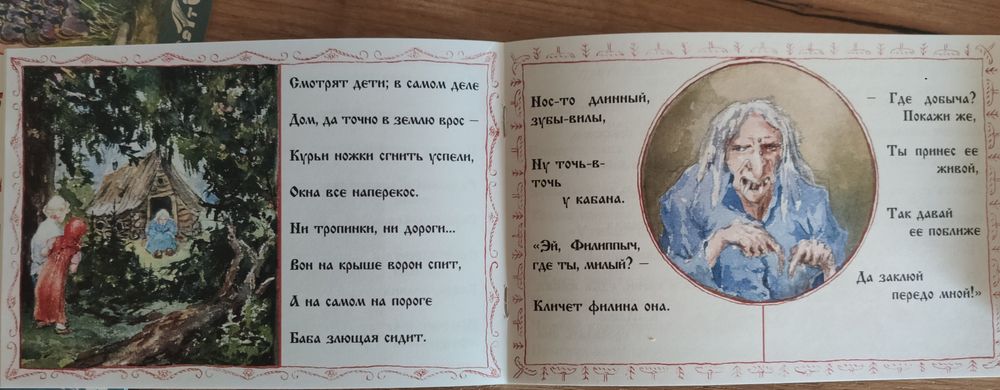 Смотрят дети; в самом деле
Дом, да точно в землю врос –
Курьи ножки сгнить успели,
Окна все наперекос.
Ни тропинки, ни дороги...
Вон на крыше ворон спит,
А на самом на пороге
Баба злющая сидит.
Нос-то длинный,
зубы-вилы,
Ну точь-в-
точь
у кабана.
«Эй, Филиппыч,
где ты, милый? –
Кличет филина она.
– Где добыча?
Покажи же,
Ты принес ее
живой,
Так давай
ее поближе
Да заклюй
передо мной!»